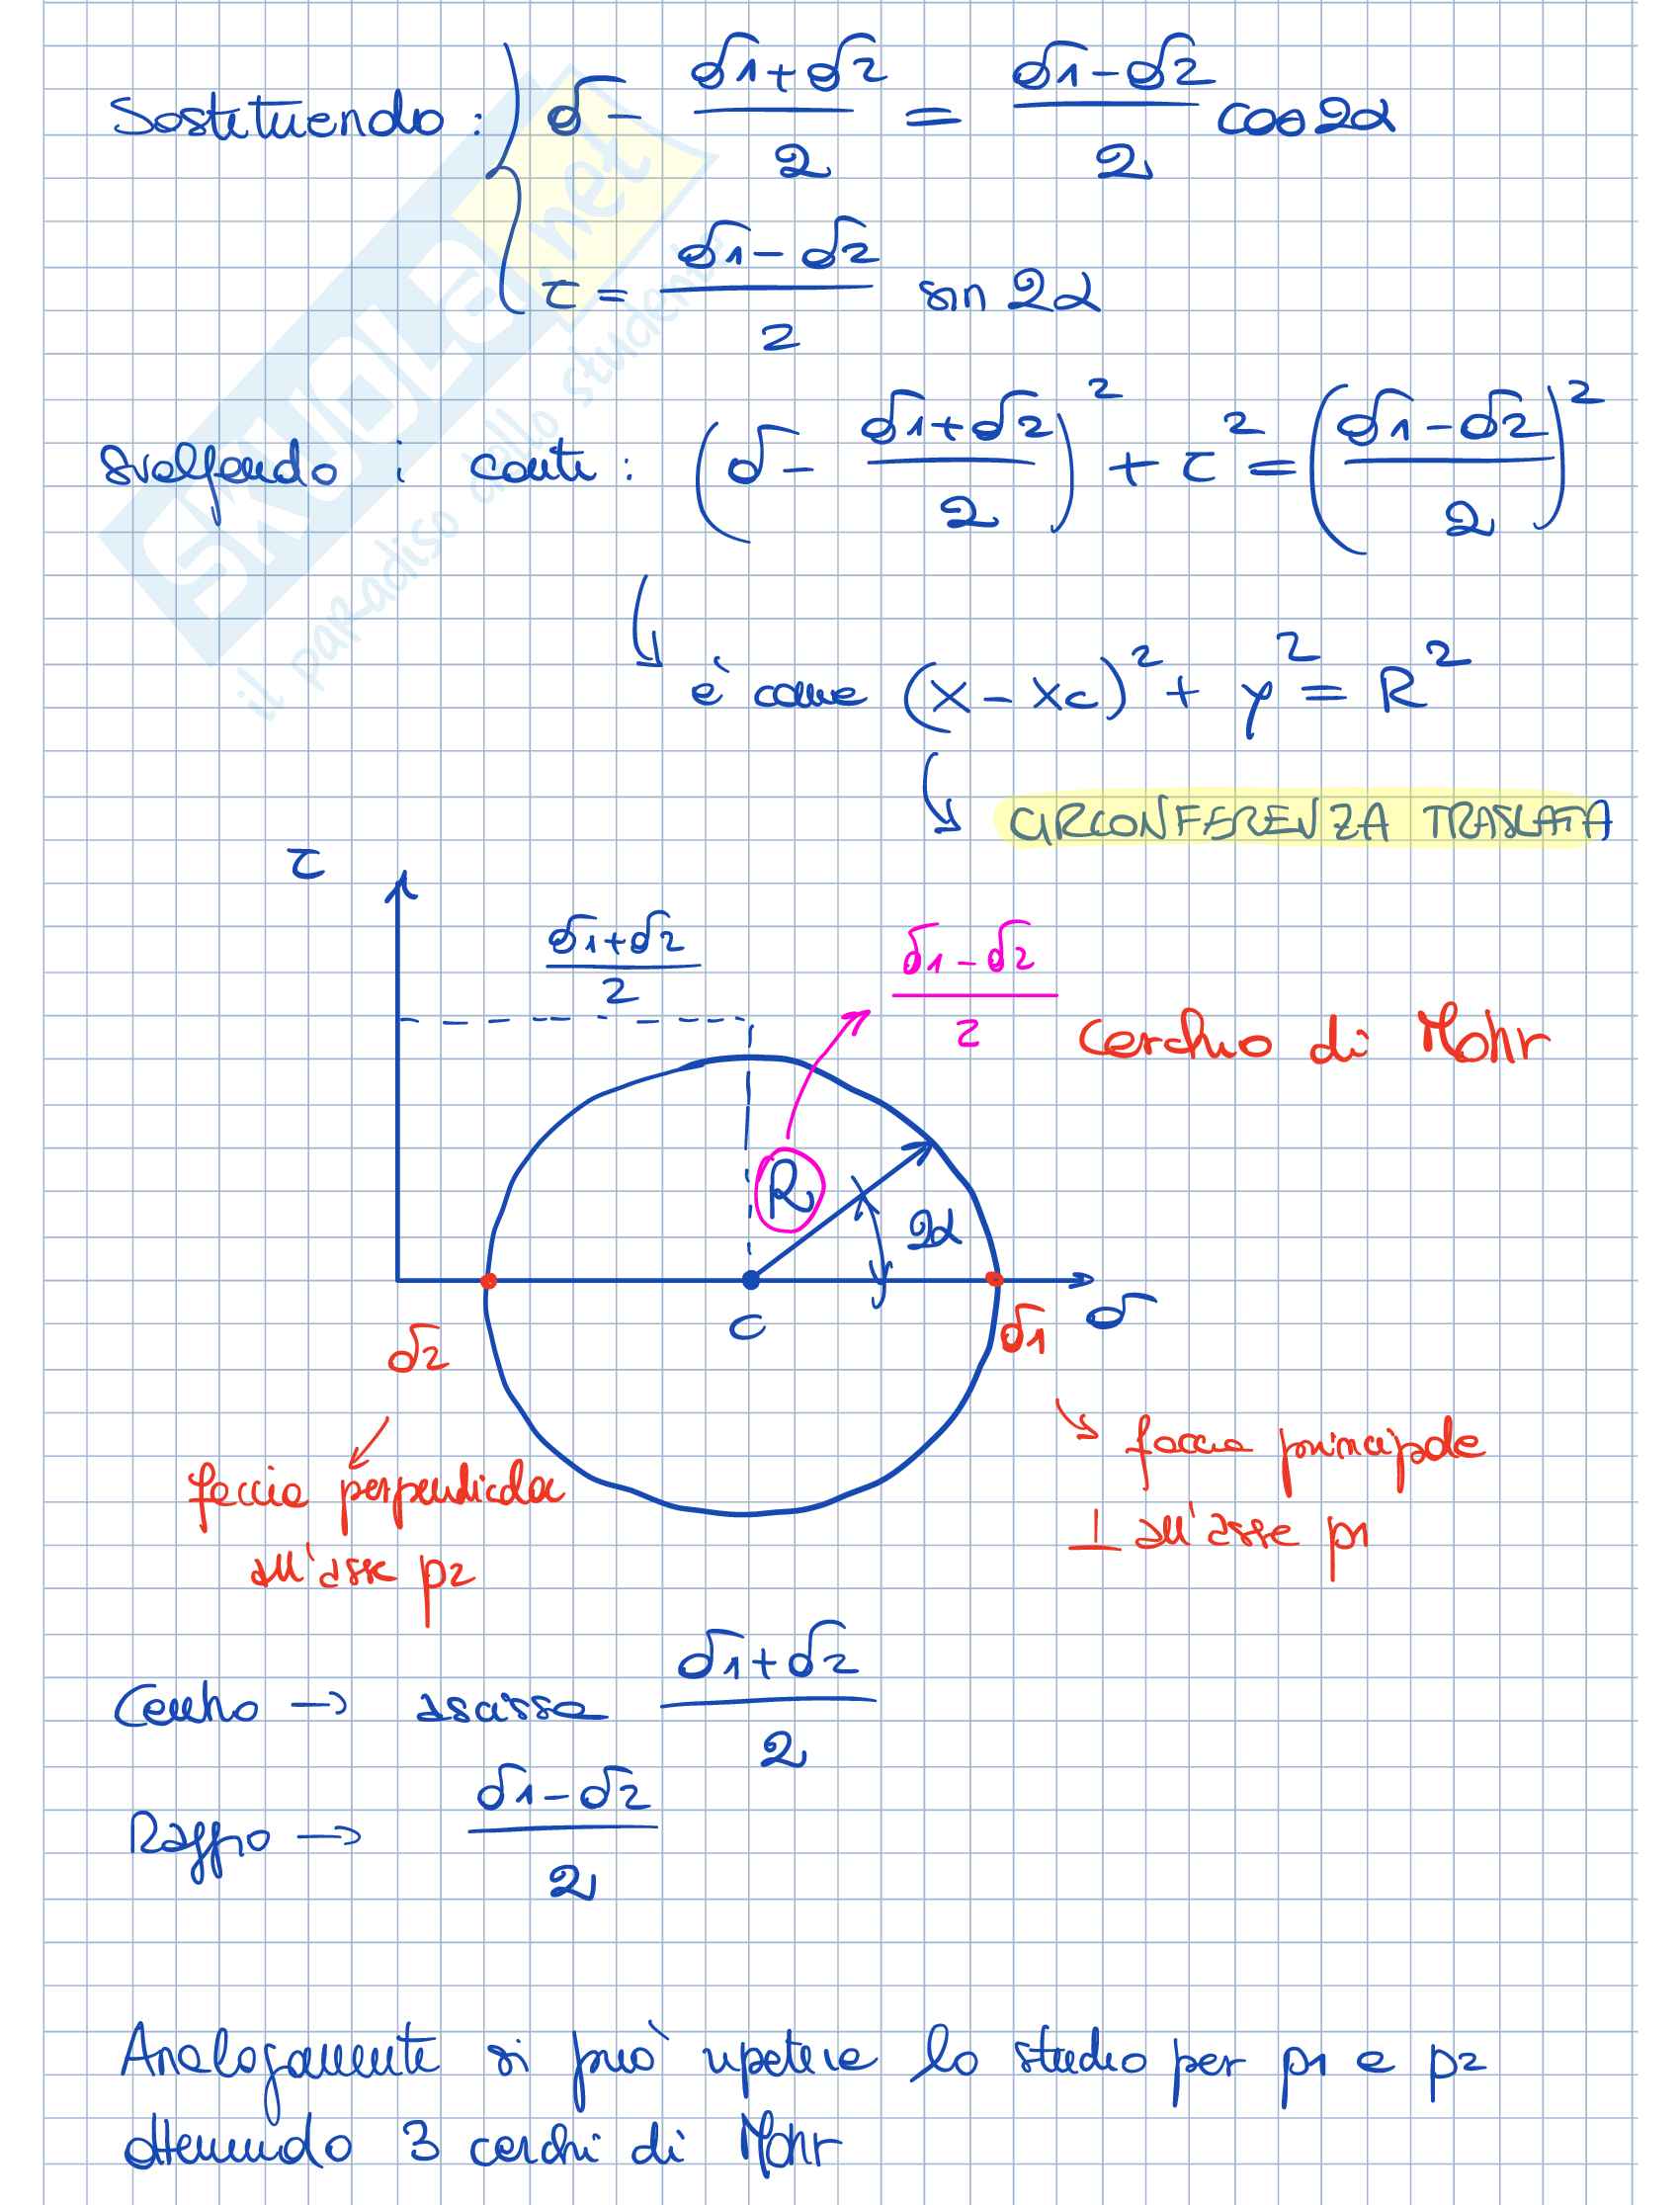 Sostituendo: { σ - (σ1+σ2)/2 = (σ1-σ2)/2 cos2α
τ = (σ1-σ2)/2 sin 2α
svolgendo i conti: (σ - (σ1+σ2)/2)² + τ² = ((σ1-σ2)/2)²
è come (x - xc)² + y² = R²
CIRCONFERENZA TRASLATA
τ
(σ1+σ2)/2
(σ1-σ2)/2
Cerchio di Mohr
R
2α
C
σ
σ2
σ1
faccia perpendicolar
all'asse p2
faccia principale
⊥ all'asse p1
Centro → ascissa (σ1+σ2)/2
Raggio → (σ1-σ2)/2
Analogamente si può ripetere lo studio per p1 e p2
ottenendo 3 cerchi di Mohr
SKUOLA.net
il paradiso dello studente